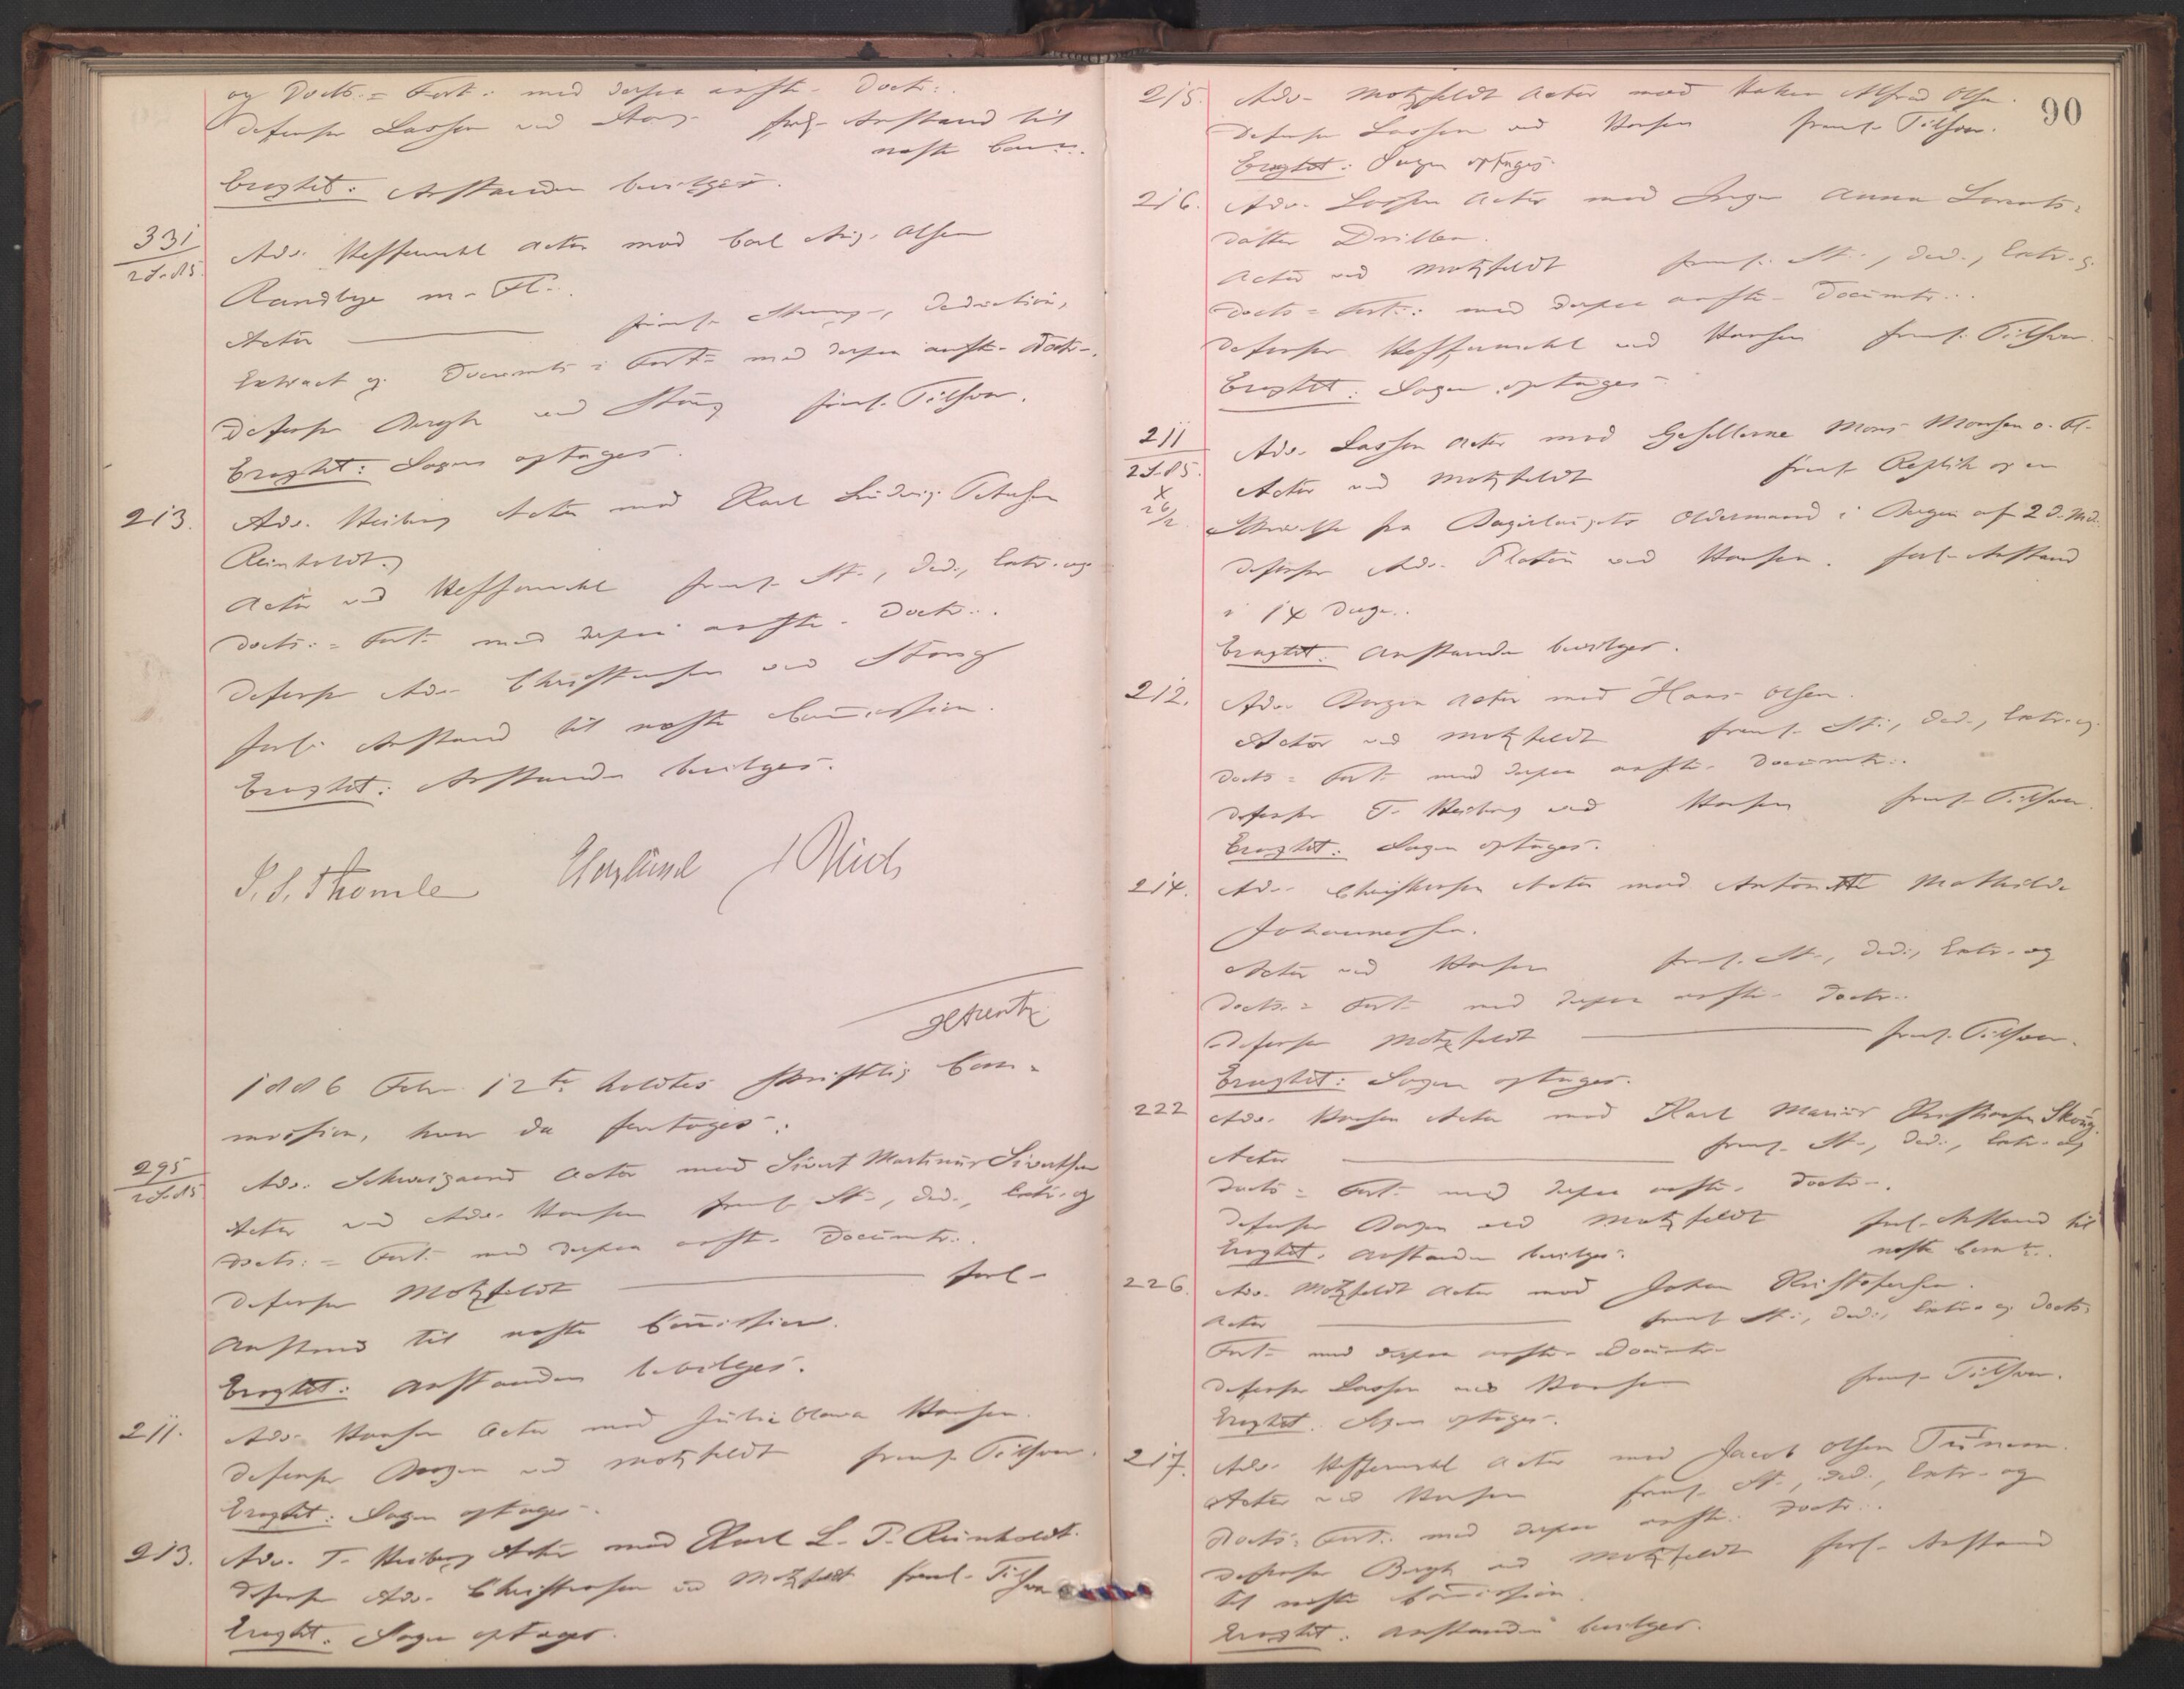 og Docts.= Fort. med derpaa anfte. Docts.
Defensor Lasson ved Stang forl. Anstand til
næste Com.
Eragtet: Anstanden bevilges.
331
2 S. 85.
Adv. Hefermehl Actor mod Carl Aug. Olsen
Randbye m. Fl.
Actor — freml. Stevng., Deduction,
Extract og Documts = Fort. med derpaa anfte. Docts.
Defensor Bergh ved Stang freml. Tilsvar.
Eragtet: Sagen optages.
213.
Adv. Heiberg Actor mod Karl Ludvig Petersen
Reinholdt.
Actor ved Hefermehl freml. St., Ded., Extr. og
Docts.= Fort. med derpaa anfte. Docts.
Defensor Adv. Christensen ved Stang
forl. Anstand til næste Commission.
Eragtet: Anstanden bevilges.
S. S. Thomle
1886 Febr. 12te holdtes skriftlig Com-
mission, hvor da foretoges:
295
2 S. 85
Adv. Schweigaard Actor mod Sivert Martinus Sivertsen
Actor ved Adv. Hansen freml. St., Ded., Extr. og
Docts.= Fort. med derpaa anfte. Documts.
Defensor Motzfeldt — forl.
Anstand til næste Commission.
Eragtet: Anstanden bevilges.
211.
Adv. Hansen Actor mod Julie Olava Hansen.
Defensor ved Motzfeldt freml. Tilsvar.
Eragtet: Sagen optages.
213.
Adv. T. Heiberg Actor mod Karl L. P. Reinholdt.
Defensor Adv. Christensen ved Motzfeldt freml. Tilsvar
Eragtet: Sagen optages.
90
215.
Adv. Motzfeldt Actor mod Haken Alfred Olsen.
Defensor Lasson ved Hansen freml. Tilsvar.
Eragtet: Sagen optages.
216.
Adv. Lasson Actor mod Inger Anna Lorents=
datter Drillen.
Actor ved Motzfeldt freml. St., Ded., Extr. og
Docts = Fort.: med derpaa anfte. Documts.
Defensor Hefermehl ved Hansen freml. Tilsvar.
Eragtet: Sagen optages.
211
2 S. 85.
x
26/2
Adv. Lasson Actor mod Gesellerne Mons Monsen o. Fl.
Actor ved Motzfeldt freml. Replik og en
Skrivelse fra Bagerlaugets Oldermand i Bergen af 2 d. Md.
Defensor Adv. Platou ved Hansen. forl. Anstand
i 14 Dage.
Eragtet: Anstanden bevilges.
212.
Adv. Actor mod Hans Olsen.
Actor ved Motzfeldt freml. St., Ded., Extr. og
Docts = Fort. med derpaa anfte. Documts.
Defensor T. Heiberg ved Hansen freml. Tilsvar.
Eragtet: Sagen optages.
214.
Adv. Christensen Actor mod Antonette Mathilde
Johannessen.
Actor ved Hansen freml. St., Ded., Extr. og
Docts.= Fort. med derpaa anfte. Docts.
Defensor Motzfeldt — freml. Tilsvar.
Eragtet: Sagen optages.
222
Adv. Hansen Actor mod Karl Marius Skoug.
Actor — freml. St., Ded., Extr. og
Docts = Fort. med derpaa anfte. Docts.
Defensor ved Motzfeldt forl. Anstand til
Eragtet. Anstanden bevilges. næste Com.
226.
Adv. Motzfeldt Actor mod Johan Kristofersen.
Actor — freml. St., Ded., Extr. og Docts.
Fort. med derpaa anfte. Documts.
Defensor Lasson ved Hansen freml. Tilsvar.
Eragtet. Sagen optages.
217.
Adv. Hefermehl Actor mod Jacob Olsen
Actor ved Hansen freml. St., Ded., Extr. og
Docts= Fort. med derpaa anfte. Docts.
Defensor Bergh ved Motzfeldt forl. Anstand
til næste Commission.
Eragtet: Anstanden bevilges.